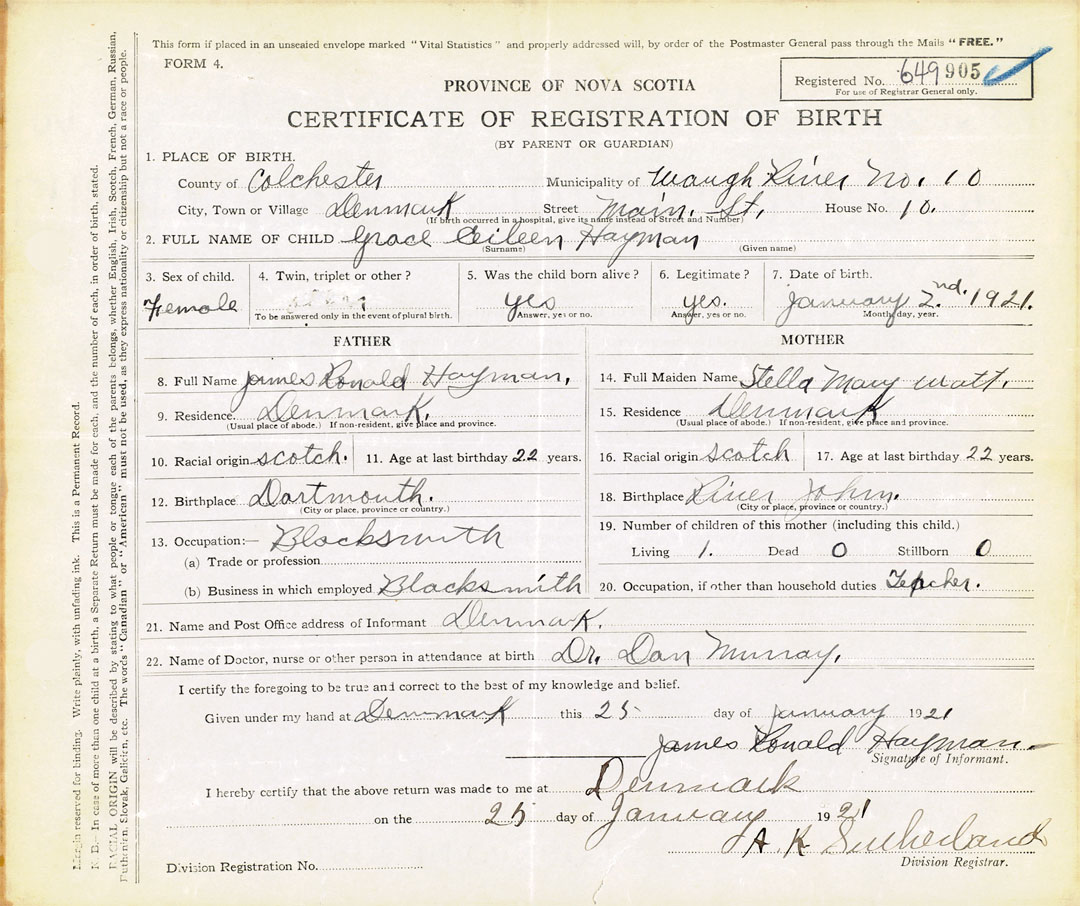 This form if placed in an unsealed envelope marked "Vital Statistics" and properly addressed will, by order of the Postmaster General pass through the Mails "FREE."
FORM 4.
Registered No. 649905
For use of Registrar General only.
PROVINCE OF NOVA SCOTIA
CERTIFICATE OF REGISTRATION OF BIRTH
(BY PARENT OR GUARDIAN)
1. PLACE OF BIRTH.
County of Colchester Municipality of Waugh River No. 10
City, Town or Village Denmark Street Main. St. House No. 10.
(If birth occurred in a hospital, give its name instead of Street and Number)
2. FULL NAME OF CHILD Grace Eileen Hayman
(Surname) (Given name)
3. Sex of child. 4. Twin, triplet or other? 5. Was the child born alive? 6. Legitimate? 7. Date of birth.
Female yes yes. January 2nd. 1921.
To be answered only in the event of plural birth. Answer, yes or no. Answer, yes or no. Month, day, year.
FATHER
8. Full Name James Ronald Hayman,
9. Residence. Denmark.
(Usual place of abode.) If non-resident, give place and province.
10. Racial origin scotch. 11. Age at last birthday 22 years.
12. Birthplace Dartmouth.
(City or place, province or country.)
13. Occupation:— Blacksmith
(a) Trade or profession
(b) Business in which employed Blacksmith
MOTHER
14. Full Maiden Name Stella Mary Watt.
15. Residence Denmark
(Usual place of abode.) If non-resident, give place and province.
16. Racial origin scotch 17. Age at last birthday 22 years.
18. Birthplace River John.
(City or place, province or country.)
19. Number of children of this mother (including this child.)
Living 1. Dead 0 Stillborn 0
20. Occupation, if other than household duties Teacher.
21. Name and Post Office address of Informant Denmark.
22. Name of Doctor, nurse or other person in attendance at birth Dr. Dan Murray.
I certify the foregoing to be true and correct to the best of my knowledge and belief.
Given under my hand at Denmark this 25 day of January 1921
James Ronald Hayman
Signature of Informant.
I hereby certify that the above return was made to me at Denmark
on the 25 day of January 1921
A. K Sutherland
Division Registrar.
Division Registration No.
Margin reserved for binding. Write plainly, with unfading ink. This is a Permanent Record.
N. B.—In case of more than one child at a birth, a Separate Return must be made for each, and the number of each, in order of birth, stated.
RACIAL ORIGIN will be described by stating to what people or tongue each of the parents belongs, whether English, Irish, Scotch, French, German, Russian,
Ruthenian, Slovak, Galician, etc. The words "Canadian" or "American" must not be used, as they express nationality or citizenship but not a race or people.